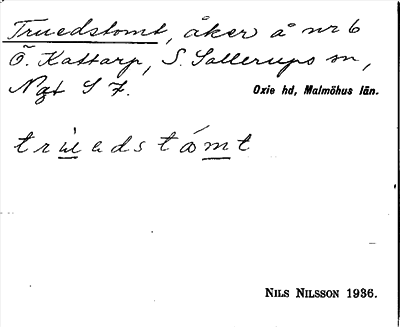 Truedstomt, åker å nr 6
Ö. Kattarp, S. Sallerups sn,
Ngt S 7.
Oxie hd, Malmöhus län.
trúedstómt
NILS NILSSON 1936.